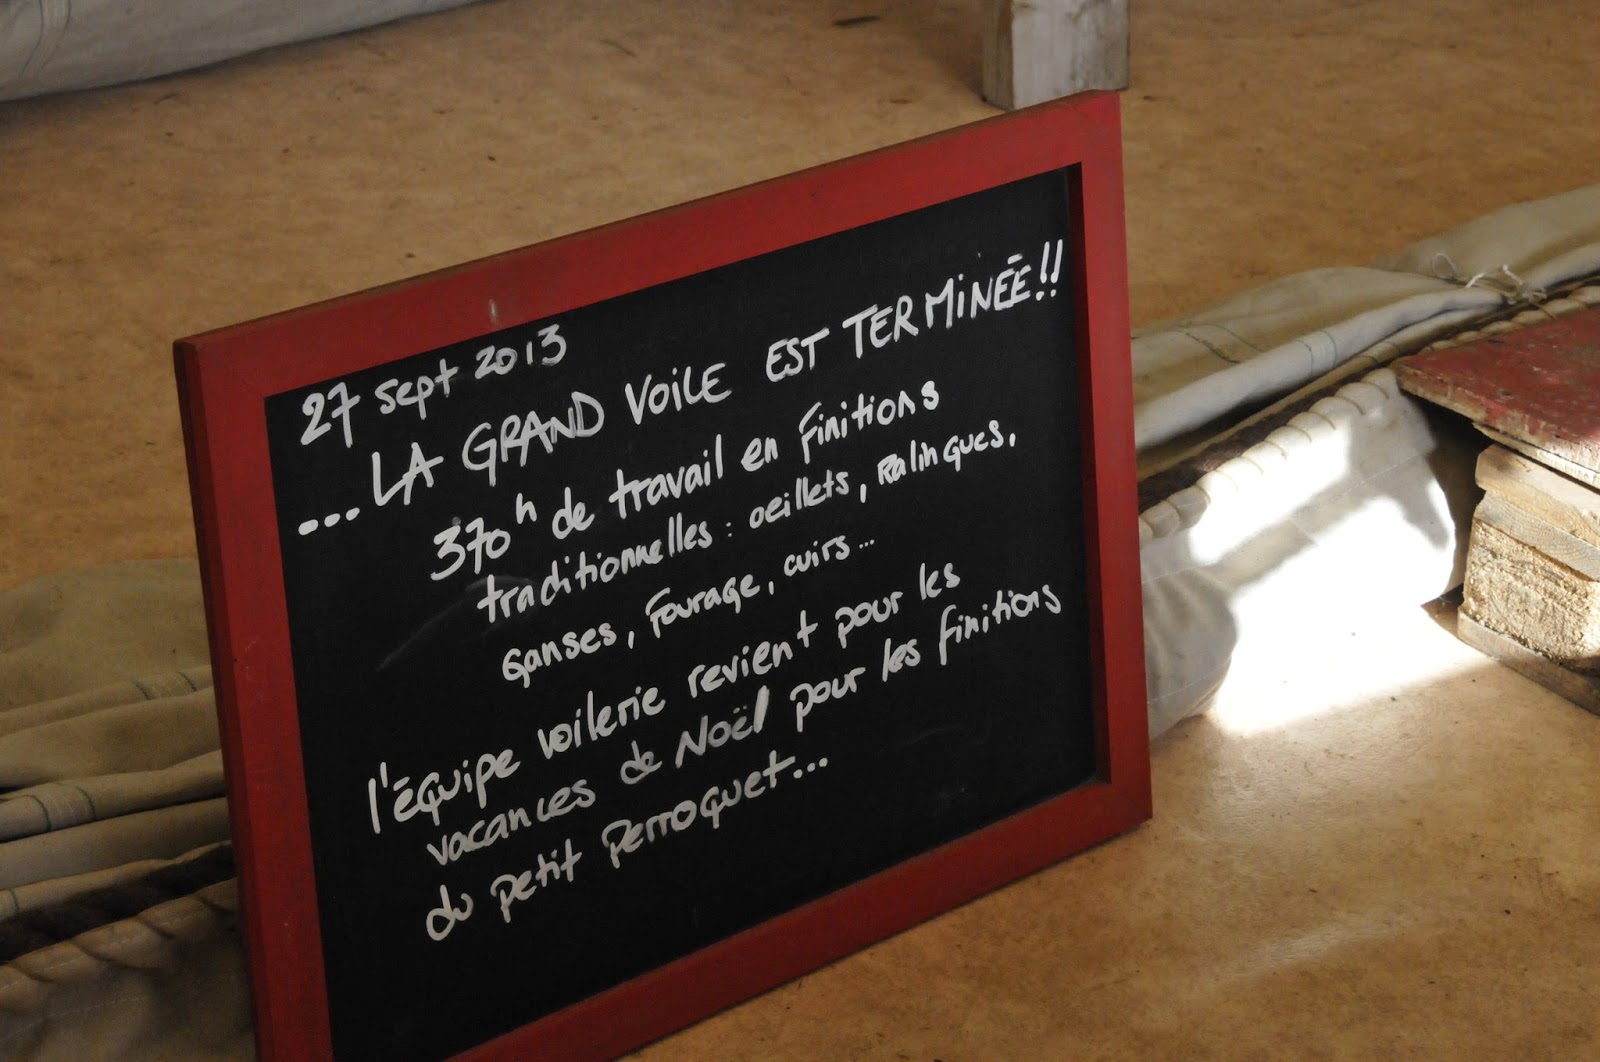 27 sept 2013
...LA GRAND VOILE EST TERMINÉE!!
370h de travail en finitions
traditionnelles : oeillets, Ralingues,
Ganses, Fourage, cuirs...
l'équipe voilerie revient pour les
vacances de Noël pour les finitions
du petit perroquet...